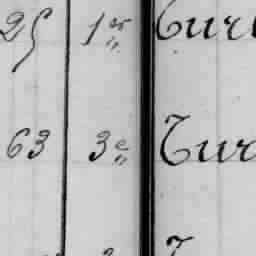 25 1er Tur
63 3e Tur